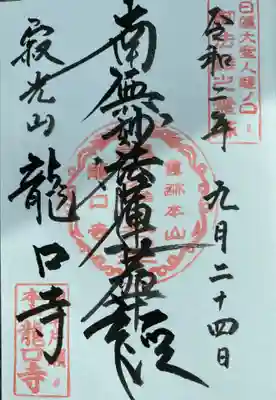 令和二年 九月二十四日
南無妙法蓮華経
寂光山 龍口寺
日蓮大聖人龍ノ口
御法難之霊場
霊跡本山
龍口寺
龍口寺